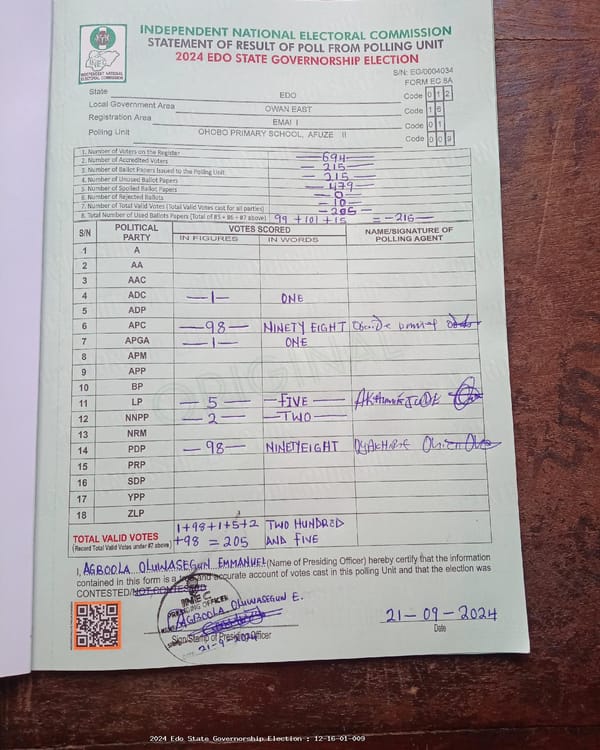 INDEPENDENT NATIONAL ELECTORAL COMMISSION
STATEMENT OF RESULT OF POLL FROM POLLING UNIT
2024 EDO STATE GOVERNORSHIP ELECTION
INEC
INDEPENDENT NATIONAL ELECTORAL COMMISSION
S/N: EG/0004034
FORM EC 8A
State EDO Code 0 1 2
Local Government Area OWAN EAST Code 1 6
Registration Area EMAI I Code 0 1
Polling Unit OHOBO PRIMARY SCHOOL, AFUZE II Code 0 0 9
1. Number of Voters on the Register 694
2. Number of Accredited Voters 215
3. Number of Ballot Papers Issued to the Polling Unit 215
4. Number of Unused Ballot Papers 479
5. Number of Spoiled Ballot Papers 0
6. Number of Rejected Ballots 10
7. Number of Total Valid Votes (Total Valid Votes cast for all parties) 205
8. Total Number of Used Ballots Papers (Total of #5 + #6 + #7 above) 99 + 101 + 15 = -215-
S/N POLITICAL PARTY VOTES SCORED NAME/SIGNATURE OF POLLING AGENT
IN FIGURES IN WORDS
1 A
2 AA
3 AAC
4 ADC -1- ONE
5 ADP
6 APC -98- NINETY EIGHT
7 APGA -1- ONE
8 APM
9 APP
10 BP
11 LP -5- -FIVE-
12 NNPP -2- -TWO-
13 NRM
14 PDP -98- NINETYEIGHT
15 PRP
16 SDP
17 YPP
18 ZLP
ORIGINAL
TOTAL VALID VOTES 1+98+1+5+2 TWO HUNDRED
(Record Total Valid Votes under #7 above) +98 = 205 AND FIVE
I, AGBOOLA OLUWASEGUN EMMANUEL (Name of Presiding Officer) hereby certify that the information
contained in this form is a true and accurate account of votes cast in this polling Unit and that the election was
CONTESTED/NOT CONTESTED
INEC
PRESIDING OFFICER
AGBOOLA OLUWASEGUN E.
Sign/Stamp of Presiding Officer
21-9-2024
21-09-2024
Date
2024 Edo State Governorship Election : 12-16-01-009